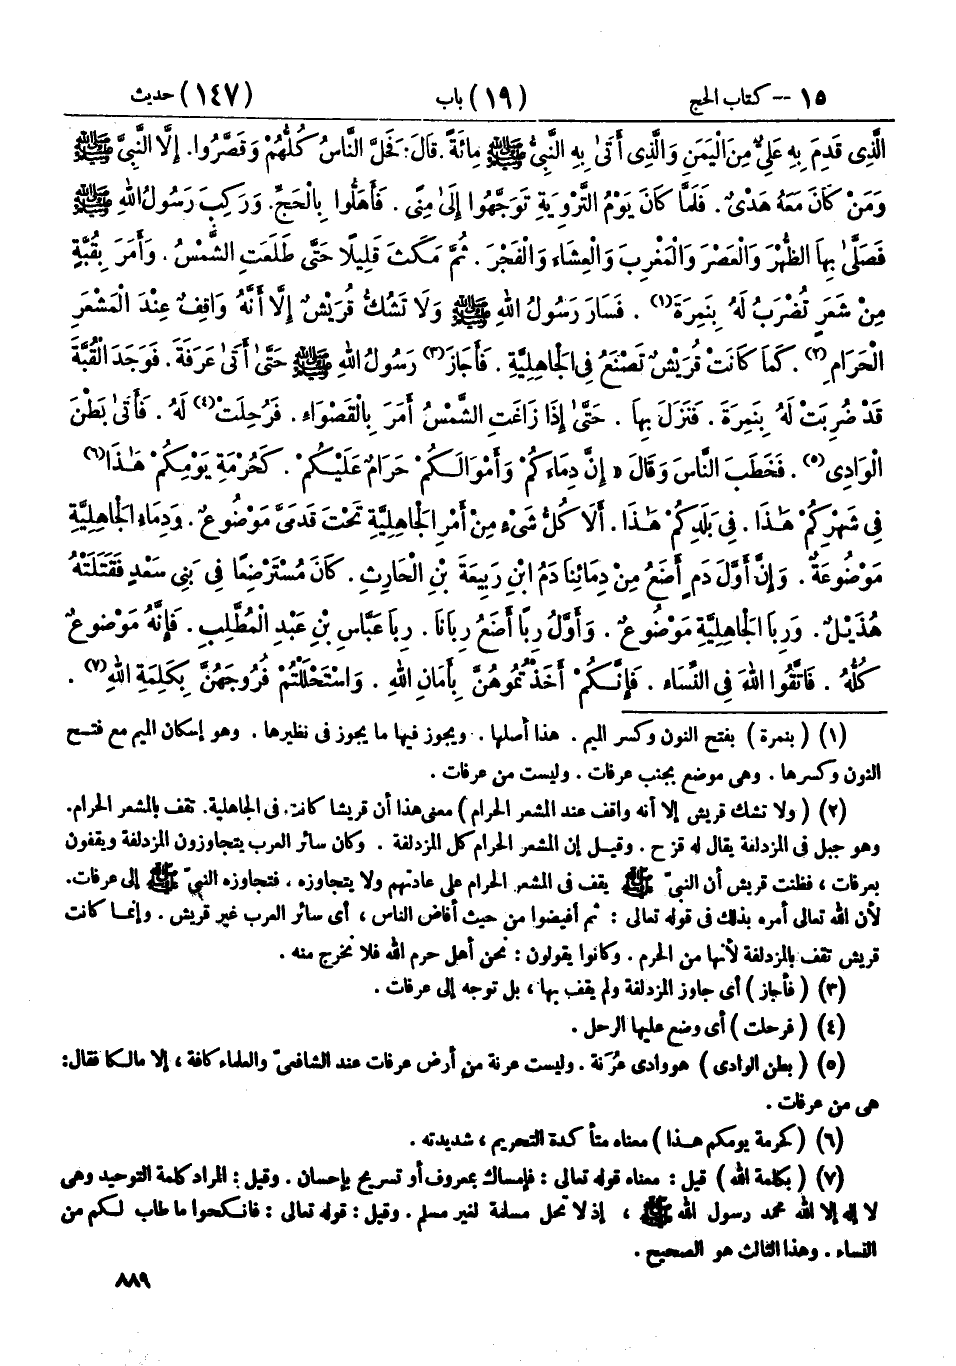 ١٥ – كتاب الحج (١٩) باب (١٤٧) حديث
الَّذِى قَدِمَ بِهِ عَلِىٌّ مِنَ الْيَمَنِ وَالَّذِى أَتَىٰ بِهِ النَّبِىُّ ﷺ مِائَةً. قَالَ: فَحَلَّ النَّاسُ كُلُّهُمْ وَقَصَّرُوا. إِلَّا النَّبِىَّ ﷺ
وَمَنْ كَانَ مَعَهُ هَدْىٌ. فَلَمَّا كَانَ يَوْمُ التَّرْوِيَةِ تَوَجَّهُوا إِلَىٰ مِنًى. فَأَهَلُّوا بِالْحَجِّ. وَرَكِبَ رَسُولُ اللهِ ﷺ
فَصَلَّىٰ بِهَا الظُّهْرَ وَالْعَصْرَ وَالْمَغْرِبَ وَالْعِشَاءَ وَالْفَجْرَ. ثُمَّ مَكَثَ قَلِيلًا حَتَّىٰ طَلَعَتِ الشَّمْسُ. وَأَمَرَ بِقُبَّةٍ
مِنْ شَعَرٍ تُضْرَبُ لَهُ بِنَمِرَةَ(١). فَسَارَ رَسُولُ اللهِ ﷺ وَلَا تَشُكُّ قُرَيْشٌ إِلَّا أَنَّهُ وَاقِفٌ عِنْدَ الْمَشْعَرِ
الْحَرَامِ(٢). كَمَا كَانَتْ قُرَيْشٌ تَصْنَعُ فِى الْجَاهِلِيَّةِ. فَأَجَازَ(٣) رَسُولُ اللهِ ﷺ حَتَّىٰ أَتَىٰ عَرَفَةَ. فَوَجَدَ الْقُبَّةَ
قَدْ ضُرِبَتْ لَهُ بِنَمِرَةَ. فَنَزَلَ بِهَا. حَتَّىٰ إِذَا زَاغَتِ الشَّمْسُ أَمَرَ بِالْقَصْوَاءِ. فَرُحِلَتْ(٤) لَهُ. فَأَتَىٰ بَطْنَ
الْوَادِى(٥). فَخَطَبَ النَّاسَ وَقَالَ « إِنَّ دِمَاءَكُمْ وَأَمْوَالَكُمْ حَرَامٌ عَلَيْكُمْ. كَحُرْمَةِ يَوْمِكُمْ هَٰذَا(٦)
فِى شَهْرِكُمْ هَٰذَا. فِى بَلَدِكُمْ هَٰذَا. أَلَا كُلُّ شَىْءٍ مِنْ أَمْرِ الْجَاهِلِيَّةِ تَحْتَ قَدَمَىَّ مَوْضُوعٌ. وَدِمَاءُ الْجَاهِلِيَّةِ
مَوْضُوعَةٌ. وَإِنَّ أَوَّلَ دَمٍ أَضَعُ مِنْ دِمَائِنَا دَمُ ابْنِ رَبِيعَةَ بْنِ الْحَارِثِ. كَانَ مُسْتَرْضِعًا فِى بَنِى سَعْدٍ فَقَتَلَتْهُ
هُذَيْلٌ. وَرِبَا الْجَاهِلِيَّةِ مَوْضُوعٌ. وَأَوَّلُ رِبًا أَضَعُ رِبَانَا. رِبَا عَبَّاسِ بْنِ عَبْدِ الْمُطَّلِبِ. فَإِنَّهُ مَوْضُوعٌ
كُلُّهُ. فَاتَّقُوا اللهَ فِى النِّسَاءِ. فَإِنَّكُمْ أَخَذْتُمُوهُنَّ بِأَمَانِ اللهِ. وَاسْتَحْلَلْتُمْ فُرُوجَهُنَّ بِكَلِمَةِ اللهِ(٧).
(١) ( بنمرة ) بفتح النون وكسر الميم. هذا أصلها. ويجوز فيها ما يجوز فى نظيرها. وهو إسكان الميم مع فتح
النون وكسرها. وهى موضع بجنب عرفات. وليست من عرفات.
(٢) ( ولا تشك قريش إلا أنه واقف عند المشعر الحرام ) معنى هذا أن قريشا كانت فى الجاهلية. تقف بالمشعر الحرام.
وهو جبل فى المزدلفة يقال له قزح. وقيل إن المشعر الحرام كل المزدلفة. وكان سائر العرب يتجاوزون المزدلفة ويقفون
بعرفات، فظنت قريش أن النبىّ ﷺ يقف فى المشعر الحرام على عادتهم ولا يتجاوزه. فتجاوزه النبىّ ﷺ إلى عرفات.
لأن الله تعالى أمره بذلك فى قوله تعالى: ثم أفيضوا من حيث أفاض الناس، أى سائر العرب غير قريش. وإنما كانت
قريش تقف بالمزدلفة لأنها من الحرم. وكانوا يقولون: نحن أهل حرم الله فلا نخرج منه.
(٣) ( فأجاز ) أى جاوز المزدلفة ولم يقف بها، بل توجه إلى عرفات.
(٤) ( فرحلت ) أى وضع عليها الرحل.
(٥) ( بطن الوادى ) هو وادى عُرَنة. وليست عرنة من أرض عرفات عند الشافعىّ والعلماء كافة، إلا مالكا فقال:
هى من عرفات.
(٦) ( كحرمة يومكم هذا ) معناه متأكدة التحريم، شديدته.
(٧) ( بكلمة الله ) قيل: معناه قوله تعالى: فإمساك بمعروف أو تسريح بإحسان. وقيل: المراد كلمة التوحيد وهى
لا إله إلا الله محمد رسول الله ﷺ، إذ لا تحل مسلمة لغير مسلم. وقيل: قوله تعالى: فانكحوا ما طاب لكم من
النساء. وهذا الثالث هو الصحيح.
٨٨٩